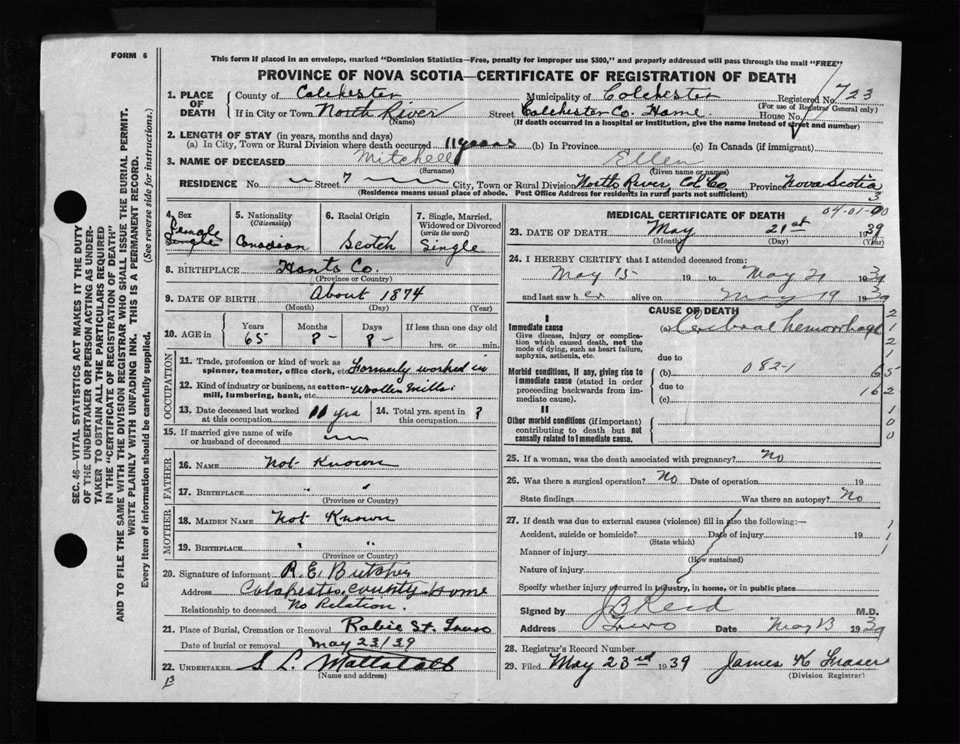 FORM 6
This form if placed in an envelope, marked "Dominion Statistics—Free, penalty for improper use $300," and properly addressed will pass through the mail "FREE"
PROVINCE OF NOVA SCOTIA—CERTIFICATE OF REGISTRATION OF DEATH
1. PLACE OF DEATH
County of Colchester Municipality of Colchester Registered No. 723
(For use of Registrar General only)
If in City or Town North River Street Colchester Co. Home House No.
(Name) (If death occurred in a hospital or institution, give the name instead of street and number)
2. LENGTH OF STAY (in years, months and days)
(a) In City, Town or Rural Division where death occurred 11 years (b) In Province (c) In Canada (if immigrant)
3. NAME OF DECEASED Mitchell Ellen
(Surname) (Given name or names)
RESIDENCE No. Street City, Town or Rural Division North River, Col. Co. Province Nova Scotia
(Residence means usual place of abode. Post Office Address for residents in rural parts not sufficient)
3
4. Sex Female Single
5. Nationality (Citizenship) Canadian
6. Racial Origin Scotch
7. Single, Married, Widowed or Divorced (write the word) Single
8. BIRTHPLACE Hants Co.
(Province or Country)
9. DATE OF BIRTH About 1874
(Month) (Day) (Year)
10. AGE in Years 65 Months ?- Days ?- If less than one day old hrs. or min.
OCCUPATION
11. Trade, profession or kind of work as spinner, teamster, office clerk, etc. Formerly worked in
12. Kind of industry or business, as cotton-mill, lumbering, bank, etc. Woollen Mills.
13. Date deceased last worked at this occupation 11 yrs
14. Total yrs. spent in this occupation ?
15. If married give name of wife or husband of deceased
FATHER
16. NAME Not Known
17. BIRTHPLACE " "
(Province or Country)
MOTHER
18. MAIDEN NAME Not Known
19. BIRTHPLACE " "
(Province or Country)
20. Signature of informant R. E. Butcher
Address Colchester County Home
Relationship to deceased No Relation.
21. Place of Burial, Cremation or Removal Robie St. Truro
Date of burial or removal May 23/39
22. UNDERTAKER S L Mattatall
(Name and address)
13
MEDICAL CERTIFICATE OF DEATH 04-01-00
23. DATE OF DEATH May 21st 1939
(Month) (Day) (Year)
24. I HEREBY CERTIFY that I attended deceased from:
May 15 19 to May 21 1939
and last saw her alive on May 19 1939
CAUSE OF DEATH
I
Immediate cause
Give disease, injury or complication which caused death, not the mode of dying, such as heart failure, asphyxia, asthenia, etc.
(a) Cerebral hemorrhage
due to
Morbid conditions, if any, giving rise to immediate cause (stated in order proceeding backwards from immediate cause).
(b) 082-1
due to
(c)
II
Other morbid conditions (if important) contributing to death but not causally related to immediate cause.
2
1
2
1
65
162
1
0
0
25. If a woman, was the death associated with pregnancy? No
26. Was there a surgical operation? No Date of operation 19
State findings Was there an autopsy? No
27. If death was due to external causes (violence) fill in also the following:—
Accident, suicide or homicide? Date of injury 19
(State which)
Manner of injury
(How sustained)
Nature of injury
Specify whether injury occurred in industry, in home, or in public place
1
1
1
Signed by J B Reid M.D.
Address Truro Date May 23 1939
28. Registrar's Record Number
29. Filed May 23rd 1939 James K Fraser
(Division Registrar)
SEC. 46—VITAL STATISTICS ACT MAKES IT THE DUTY
OF THE UNDERTAKER OR PERSON ACTING AS UNDER-
TAKER TO OBTAIN ALL THE PARTICULARS REQUIRED
IN THE "CERTIFICATE OF REGISTRATION OF DEATH"
AND TO FILE THE SAME WITH THE DIVISION REGISTRAR WHO SHALL ISSUE THE BURIAL PERMIT.
WRITE PLAINLY WITH UNFADING INK. THIS IS A PERMANENT RECORD.
Every item of information should be carefully supplied. (See reverse side for instructions.)